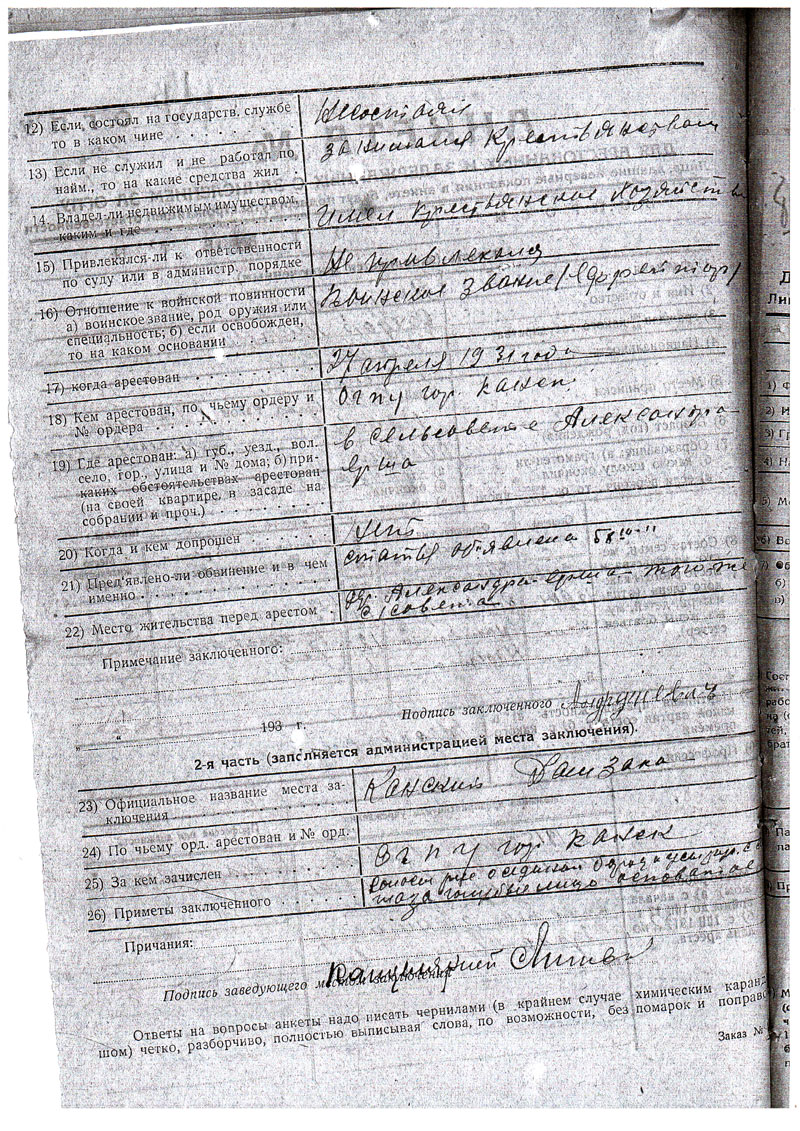 12) Если, состоял на государств. службе
то в каком чине
Несостоял
13) Если не служил и не работал по
найм., то на какие средства жил
занимался крестьянством
14. Владел-ли недвижимым имуществом,
каким и где
Имел крестьянское хозяйства
15) Привлекался-ли к ответственности
по суду или в администр. порядке
Не привлекался
16) Отношение к войнской повинности
а) воинское звание, род оружия или
специальность; б) если освобожден,
то на каком основании
Воинское звание
17) когда арестован
27 апреля 1931 года
18) Кем арестован, по чьему ордеру и
№ ордера
ОГПУ гор. Канск
19) Где арестован: а) губ., уезд., вол.
село, гор., улица и № дома; б) при-
каких обстоятельствах арестован
(на своей квартире, в засаде на
собрании и проч.)
в сельсовете Александра-
Ерша
20) Когда и кем допрошен
Нет
21) Пред'явлено-ли обвинение и в чем
именно
статья объявлена 58 10-11
22) Место жительства перед арестом
дер. Александра-Ерша того-же
с/совета
Примечание заключенного:
Подпись заключенного
" " 193 г.
2-я часть (заполняется администрацией места заключения).
23) Официальное название места за-
ключения
Канский Домзак
24) По чьему орд. арестован и № орд.
25) За кем зачислен
ОГПУ гор Канск
26) Приметы заключенного
глаза голубые лицо
Причания:
Подпись заведующего местом заключения
Ответы на вопросы анкеты надо писать чернилами (в крайнем случае химическим каранд
шом) четко, разборчиво, полностью выписывая слова, по возможности, без помарок и поправо
Заказ №